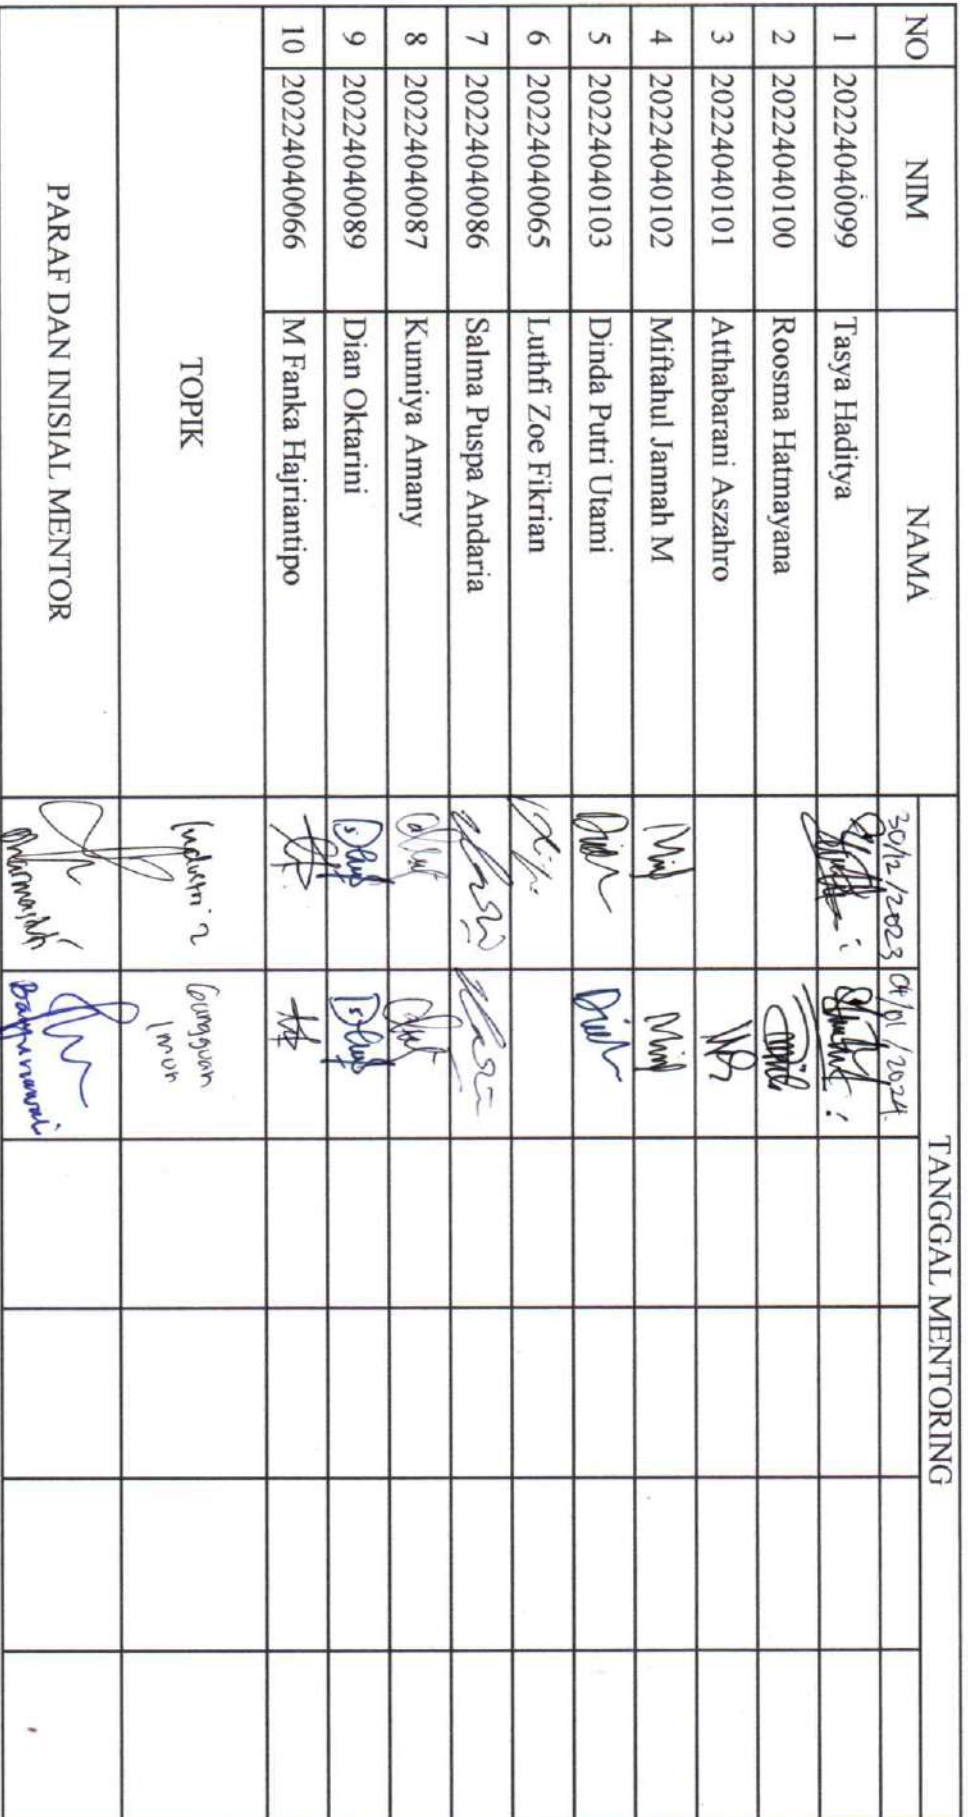 NO NIM NAMA TANGGAL MENTORING
30/12/2023 04/01/2024
1 20224040099 Tasya Haditya
2 20224040100 Roosma Hatmayana
3 20224040101 Atthabarani Aszahro
4 20224040102 Miftahul Jannah M
5 20224040103 Dinda Putri Utami
6 20224040065 Luthfi Zoe Fikrian
7 20224040086 Salma Puspa Andaria
8 20224040087 Kunniya Amany
9 20224040089 Dian Oktarini
10 20224040066 M Fanka Hajriantipo
TOPIK 2 Gangguan
Imun
PARAF DAN INISIAL MENTOR